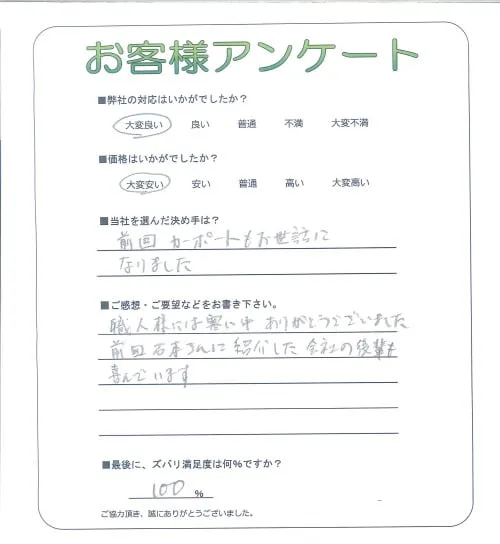 お客様アンケート
■弊社の対応はいかがでしたか？
大変良い 良い 普通 不満 大変不満
■価格はいかがでしたか？
大変安い 安い 普通 高い 大変高い
■当社を選んだ決め手は？
前回 カーポートもお世話に
なりました
■ご感想・ご要望などをお書き下さい。
職人様には寒い中 ありがとうございました
前回 石本さんに紹介した 会社の後輩も
喜んでいます
■最後に、ズバリ満足度は何%ですか？
100 %
ご協力頂き、誠にありがとうございました。